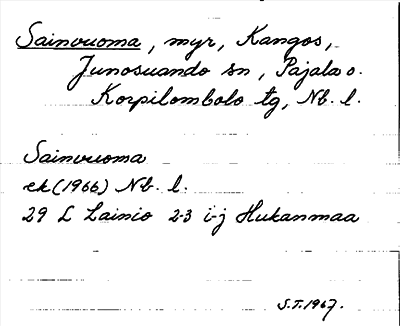 Sainvuoma, myr, Kangos,
Junosuando sn, Pajala o.
Korpilombolo tg, Nb. l.
Sainvuoma
ek (1966) Nb. l.
29 L Lainio 2-3 i-j Hukanmaa
S.T. 1967.